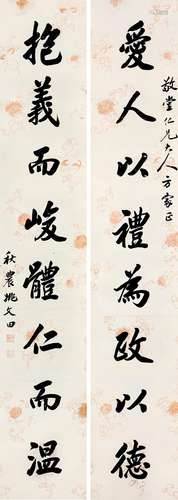 敬堂仁兄大人方家正
愛人以禮為政以德
抱義而峻體仁而溫
秋農姚文田